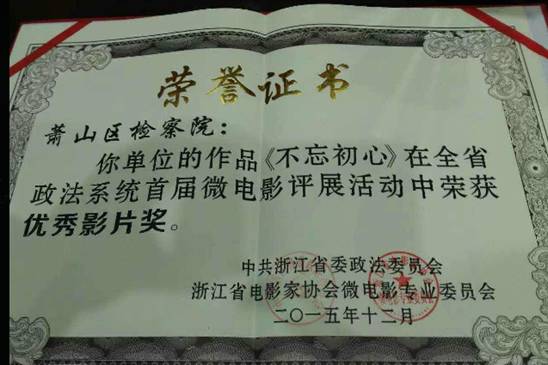 荣誉证书
萧山区检察院：
你单位的作品《不忘初心》在全省
政法系统首届微电影评展活动中荣获
优秀影片奖。
中共浙江省委政法委员会
浙江省电影家协会微电影专业委员会
二〇一五年十二月